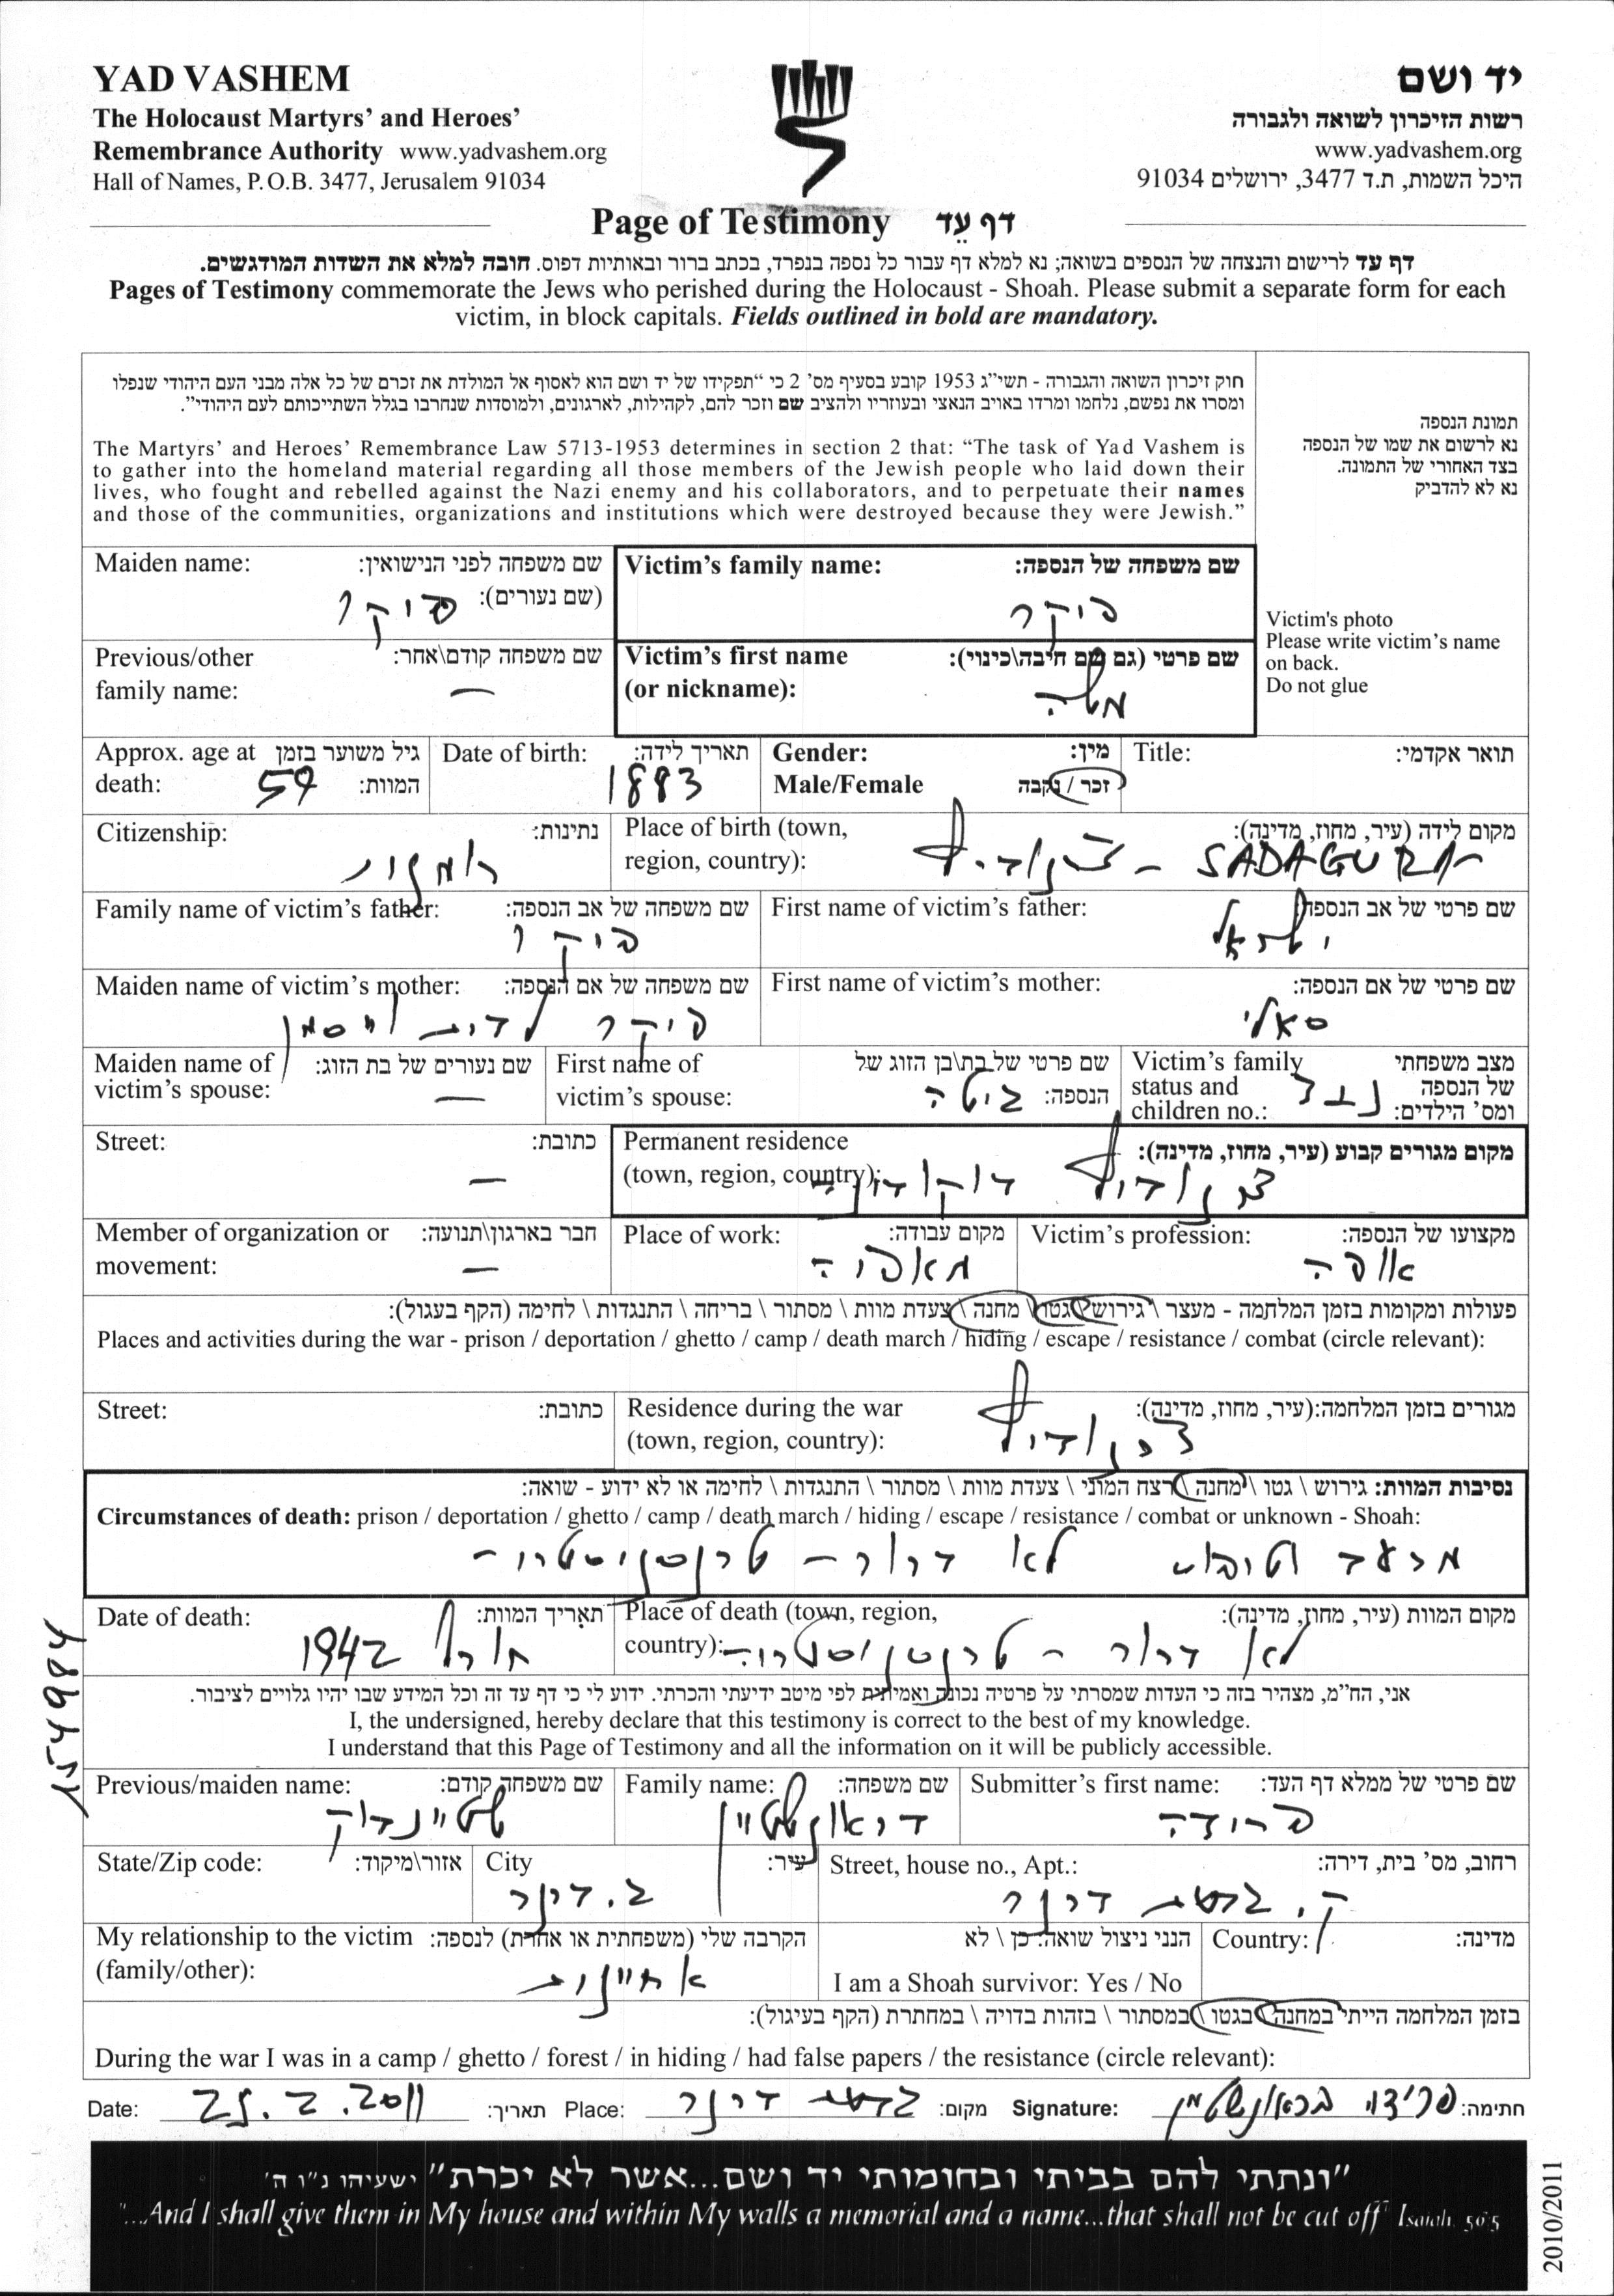 YAD VASHEM
The Holocaust Martyrs' and Heroes'
Remembrance Authority www.yadvashem.org
Hall of Names, P.O.B. 3477, Jerusalem 91034
יד ושם
רשות הזיכרון לשואה ולגבורה
www.yadvashem.org
היכל השמות, ת.ד 3477, ירושלים 91034
Page of Testimony דף עֵד
דף עד לרישום והנצחה של הנספים בשואה; נא למלא דף עבור כל נספה בנפרד, בכתב ברור ובאותיות דפוס. חובה למלא את השדות המודגשים.
Pages of Testimony commemorate the Jews who perished during the Holocaust - Shoah. Please submit a separate form for each
victim, in block capitals. Fields outlined in bold are mandatory.
חוק זיכרון השואה והגבורה - תשי"ג 1953 קובע בסעיף מס' 2 כי "תפקידו של יד ושם הוא לאסוף אל המולדת את זכרם של כל אלה מבני העם היהודי שנפלו
ומסרו את נפשם, נלחמו ומרדו באויב הנאצי ובעוזריו ולהציב שם וזכר להם, לקהילות, לארגונים, ולמוסדות שנחרבו בגלל השתייכותם לעם היהודי".
The Martyrs' and Heroes' Remembrance Law 5713-1953 determines in section 2 that: "The task of Yad Vashem is
to gather into the homeland material regarding all those members of the Jewish people who laid down their
lives, who fought and rebelled against the Nazi enemy and his collaborators, and to perpetuate their names
and those of the communities, organizations and institutions which were destroyed because they were Jewish."
תמונת הנספה
נא לרשום את שמו של הנספה
בצד האחורי של התמונה.
נא לא להדביק
Victim's photo
Please write victim's name
on back.
Do not glue
Maiden name: שם משפחה לפני הנישואין:
(שם נעורים): פיקר
Victim's family name: שם משפחה של הנספה:
פיקר
Previous/other שם משפחה קודם\אחר:
family name: —
Victim's first name שם פרטי (גם שם חיבה\כינוי):
(or nickname): משה
Approx. age at גיל משוער בזמן
death: 59 המוות:
Date of birth: תאריך לידה:
1883
Gender: מין:
Male/Female זכר / נקבה
Title: תואר אקדמי:
Citizenship: נתינות:
Place of birth (town, מקום לידה (עיר, מחוז, מדינה):
region, country): SADAGURA - צ'רנוביץ
Family name of victim's father: שם משפחה של אב הנספה:
פיקר
First name of victim's father: שם פרטי של אב הנספה:
ישראל
Maiden name of victim's mother: שם משפחה של אם הנספה:
פיקר
First name of victim's mother: שם פרטי של אם הנספה:
סאלי
Maiden name of שם נעורים של בת הזוג:
victim's spouse: —
First name of שם פרטי של בת\בן הזוג של
victim's spouse: הנספה:
Victim's family מצב משפחתי
status and של הנספה
children no.: ומס' הילדים:
Street: כתובת:
—
Permanent residence מקום מגורים קבוע (עיר, מחוז, מדינה):
(town, region, country): צ'רנוביץ בוקובינה
Member of organization or חבר בארגון\תנועה:
movement: —
Place of work: מקום עבודה:
מאפיה
Victim's profession: מקצועו של הנספה:
אופה
פעולות ומקומות בזמן המלחמה - מעצר \ גירוש \ גטו \ מחנה \ צעדת מוות \ מסתור \ בריחה \ התנגדות \ לחימה (הקף בעגול):
Places and activities during the war - prison / deportation / ghetto / camp / death march / hiding / escape / resistance / combat (circle relevant):
Street: כתובת:
Residence during the war מגורים בזמן המלחמה:(עיר, מחוז, מדינה):
(town, region, country): צ'רנוביץ
נסיבות המוות: גירוש \ גטו \ מחנה \ רצח המוני \ צעדת מוות \ מסתור \ התנגדות \ לחימה או לא ידוע - שואה:
Circumstances of death: prison / deportation / ghetto / camp / death march / hiding / escape / resistance / combat or unknown - Shoah:
מרעב וטיפוס
Date of death: תאריך המוות:
חורף 1942
Place of death (town, region, מקום המוות (עיר, מחוז, מדינה):
country):
אני, הח"מ, מצהיר בזה כי העדות שמסרתי על פרטיה נכונה ואמיתית לפי מיטב ידיעתי והכרתי. ידוע לי כי דף עד זה וכל המידע שבו יהיו גלויים לציבור.
I, the undersigned, hereby declare that this testimony is correct to the best of my knowledge.
I understand that this Page of Testimony and all the information on it will be publicly accessible.
Previous/maiden name: שם משפחה קודם:
Family name: שם משפחה:
בראונשטיין
Submitter's first name: שם פרטי של ממלא דף העד:
פרידה
State/Zip code: אזור\מיקוד:
City עיר:
Street, house no., Apt.: רחוב, מס' בית, דירה:
My relationship to the victim הקרבה שלי (משפחתית או אחרת) לנספה:
(family/other): אחיינית
הנני ניצול שואה: כן \ לא
I am a Shoah survivor: Yes / No
Country: מדינה:
בזמן המלחמה הייתי במחנה \ בגטו \ במסתור \ בזהות בדויה \ במחתרת (הקף בעיגול):
During the war I was in a camp / ghetto / forest / in hiding / had false papers / the resistance (circle relevant):
Date: 25.2.2011 תאריך: Place: מקום: Signature: חתימה:
"ונתתי להם בביתי ובחומותי יד ושם...אשר לא יכרת" ישעיהו נ"ו ה'
"...And I shall give them in My house and within My walls a memorial and a name...that shall not be cut off" Isaiah. 56:5
2010/2011